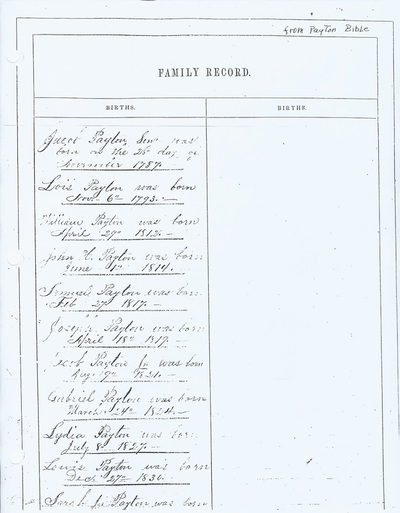 from Payton Bible
FAMILY RECORD.
BIRTHS.
BIRTHS.
Payton, Sen was
born on the 25 day of
1787.
Lois Payton was born
Nov. 6th 1793.
William Payton was born
April 29th 1812.
John Payton was born
June 1st 1814.
Payton was born
Feb 27 1817.
Joseph Payton was born
April 18th
Jacob Payton Jn was born
9th 1821.
Gabriel Payton was born
March 24th
Lydia Payton was born
July 8th 1827.
Lewis Payton was born
Dech 27th 1830.
Sarah Payton was born